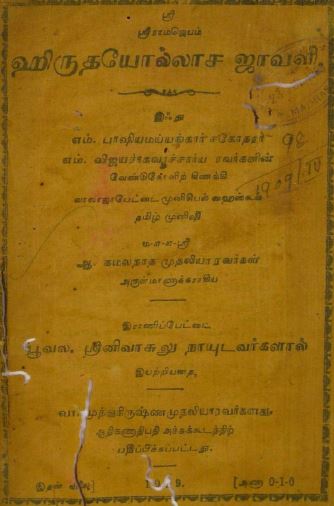 ஸ்ரீ
ஸ்ரீராமஜெயம்
ஹிருதயோல்லாச ஜாவளி.
இஃது
எம். பாஷியமய்யங்கார் சகோதரர்
எம். விஜயராகவாச்சார்ய ரவர்களின்
வேண்டுகோளிற் கிணங்கி
வாலாஜாபேட்டை முனிசிபல் ஹைஸ்கூல்
தமிழ் முனிஷி
ம-௱-௱-ஸ்ரீ
ஆ. கமலநாத முதலியாரவர்கள்
அருள்மாணாக்கராகிய
இராணிப்பேட்டை
பூவல. ஸ்ரீனிவாசுலு நாயுடவர்களால்
இயற்றியதை,
வா. முத்துகிருஷ்ணமுதலியாரவர்களது,
ஆதிகணாதிபதி அச்சுக்கூடத்திற்
பதிப்பிக்கப்பட்டது.
இதன் விலை] 19 9. [அணா 0-1-0